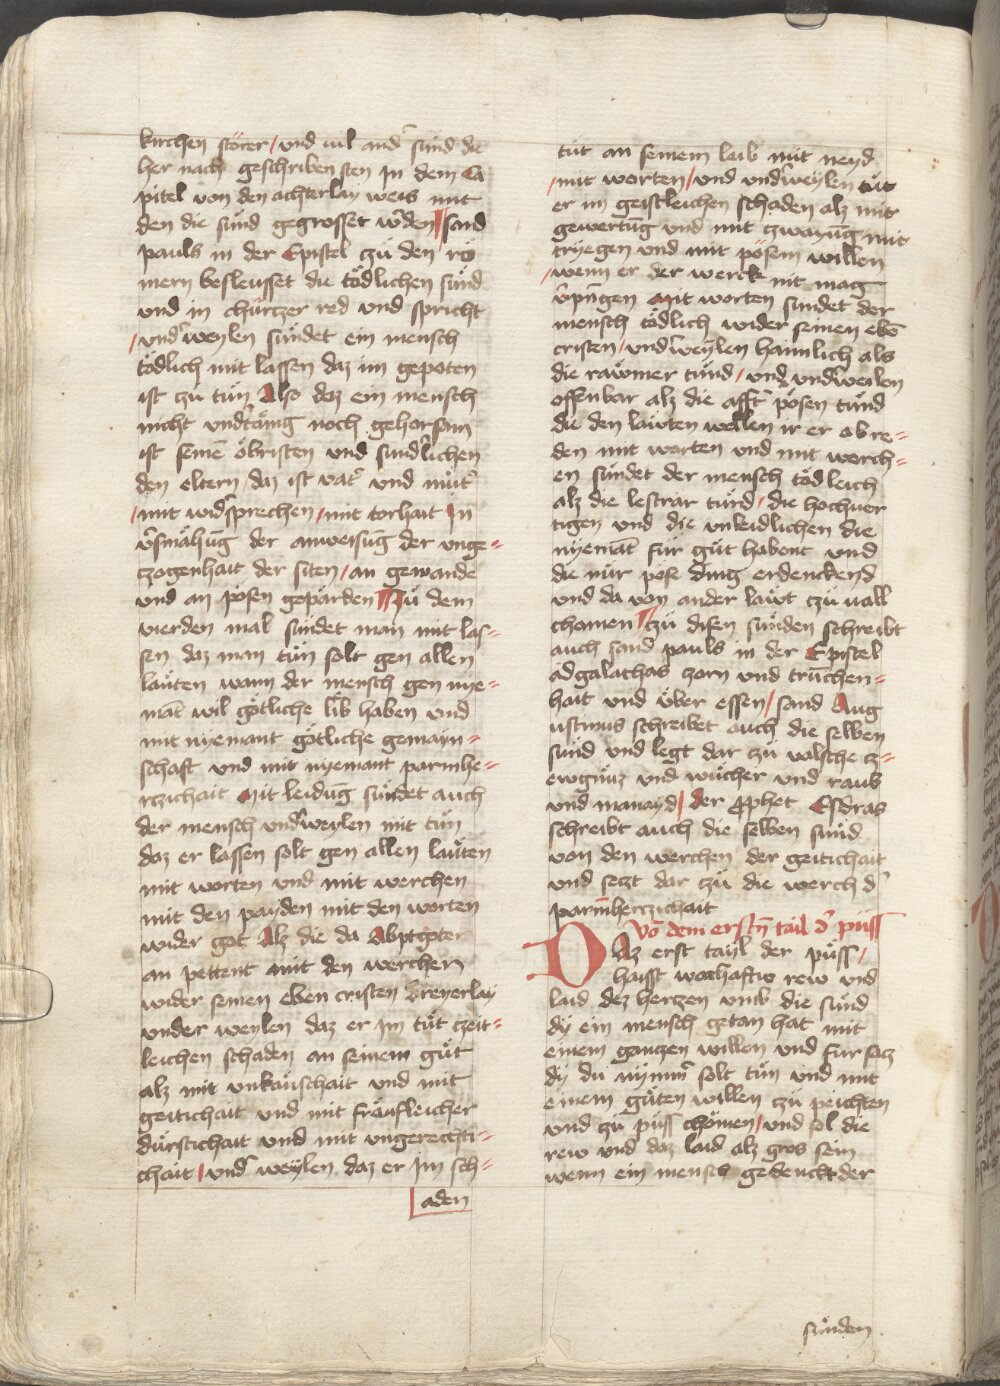 kirchen störer / und vil and̄ sünd die
her nach geschriben sten In dem Ca
pitel von den achterlay weis mit
den die sünd gegrosset w̄den ¶ sand
pauls in der Epistel czü den rö
mern besleusset die tödlichen sünd
und in chürtzer red und spricht
/ und̄weylen sündet ein mensch
tödlich mit lassen daz im gepoten
ist zü tün Also daz ein mensch
nicht und̄tänig noch gehorsam
ist seinē öbristen und sundlichen
den eltern daz ist vat̄ und müt̄
/ mit wid̄sprechen / mit torhait In
v̄smähūg der anweisūg der unge=
czogenhait der siten / an gewande
und an pösen gepärden ¶ Zü dem
vierden mal sündet man mit las=
sen daz man tün solt gen allen
läuten wann der mensch gen nye=
māt wil götliche lib haben und
mit nyemant götliche gemayn=
schaft und mit nyemant parmhe=
rczichait Mit leidūg sündet auch
der mensch und̄weylen mit tün
daz er lassen solt gen allen läuten
mit worten und mit werchen
mit den payden mit den worten
wider got Alz die da Abptgöter
an pettent mit den werchen
wider seinen eben cristen dreyerlay
under weylen daz er Im tüt czeit=
leichen schaden an seinem güt
alz mit unkäuschait und mit
geitichait und mit fräufleicher
dürstichait und mit ungerechti=
chait / und̄ weylen daz er Im sch=
aden
tüt an seinem leib mit neyd
/ mit worten / und und̄weylen tüt
er im geistleichen schaden alz mit
gewertūg und mit zwayūg mit
triegen und mit pösem willen
/ wenn er der werck nit mag
v̄pringen Mit worten sündet der
mensch tödlich wider seinen ebē
cristen / und̄weylen haimlich als
die räwner tünd / und und̄weilen
offenbar alz die afft̄ pösen tünd
die den läwten wellen ir er ab re=
den mit worten und mit werch=
en sündet der mensch tödleich
alz die lestrar tünd / die hochuer
tigen und die unleidlichen die
nyemāt für güt habent und
die nür pöse ding erdenckend
und da von ander läwt czü vall
chomen ¶ Czü disen sünden schreibt
auch sand pauls in der Epistel
ad galathas zorn und trūchen=
hait und über essen / sand Aug
ustinus schreibet auch die selben
sünd und legt dar czü valsche cz=
ewgnüz und wücher und raub
und manayd / der p̄phet Esdras
schreibt auch die selben sünd
von den werchen der geitichait
und seczt dar czü die werch d̄
parmherczichait
Vō dem ersten tail d̄ püss
Daz erst tayl der püss /
haisst warhaftiv rew und
laid dez herczen umb die sünd
dy ein mensch getan hat mit
einem ganczen willen und für sacz
dy du nymm̄ solt tün und mit
einem güten willen czü peichten
und zü püss chömen / und sol die
rew und daz laid alz gros sein
wenn ein mensch gedenckt der
sünden